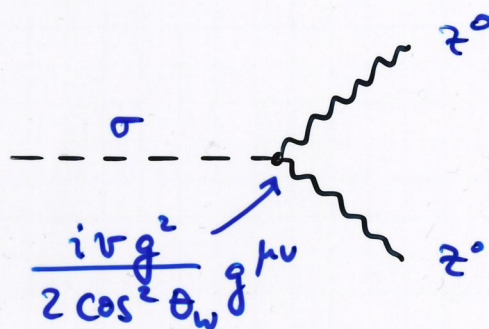 Z⁰
σ
i v g²
2 cos² θ_w g^{μν}
Z⁰